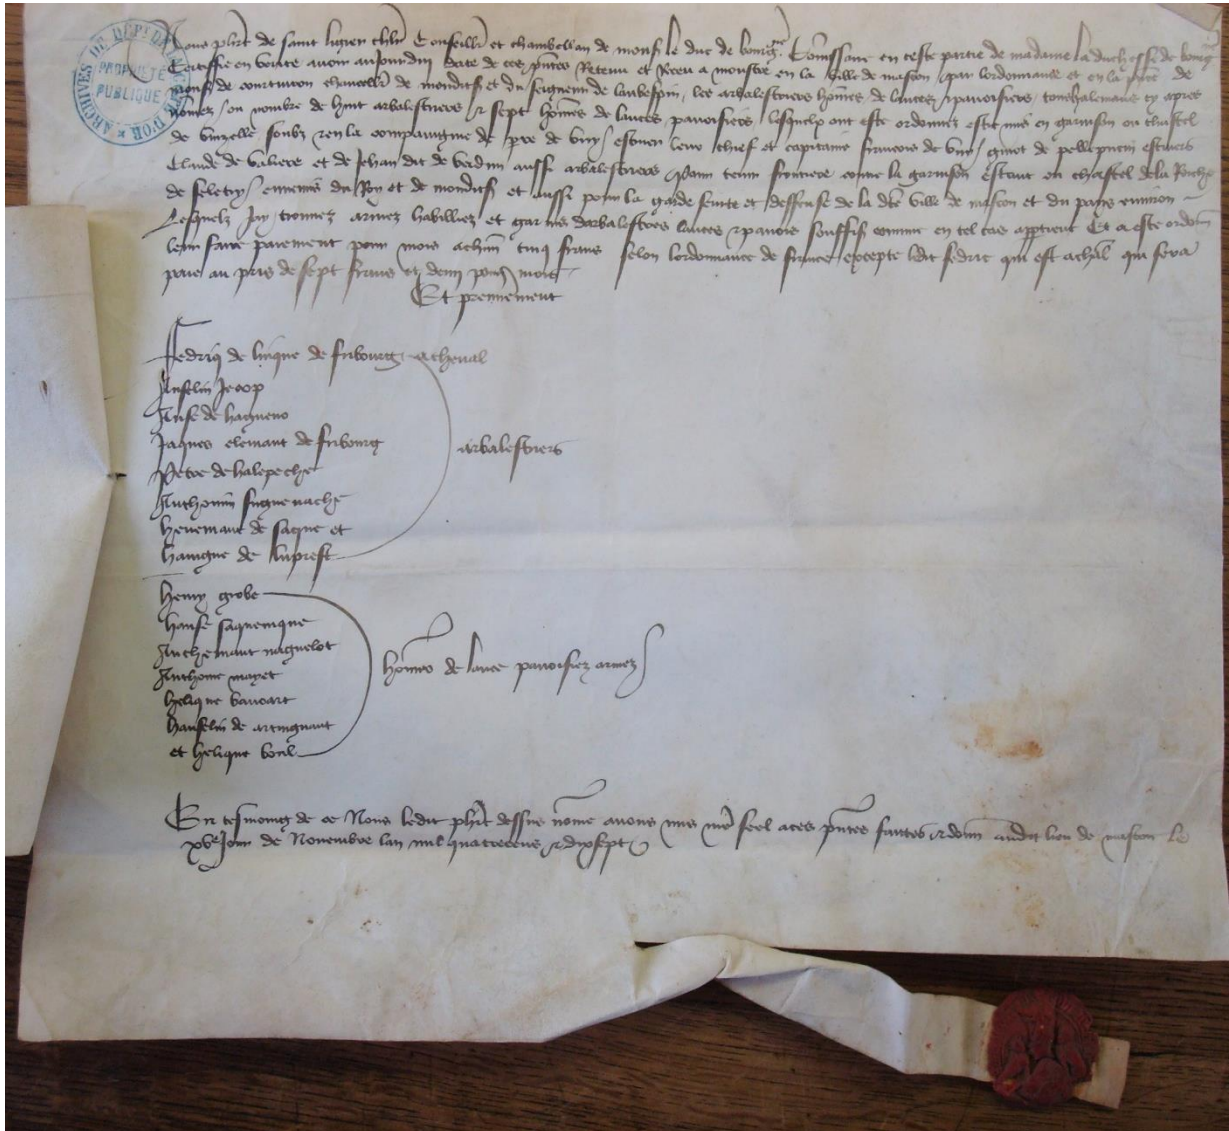 ARCHIVES DE DEPT DE LA COTE D'OR
PROPRIETE PUBLIQUE
Nous phrt de saint ligier chlr Conseillr et chambellan de mons le duc de bourgne Comissaire en ceste partie de madame la duchesse de bourgne
Certiffie en verite avoir aujourduy date de ces pntes Retenu et Receu a monstre en la ville de mascon par lordonnance et en la pnce de
mons de courtivron chancellr de mondits et du seigneur de laubespin les arbalestriers homes de lances pavoisiers tous halemans cy apres
nomez ou nombre de huit arbalestriers et sept homes de lances pavoisiers lesquelx ont este ordonnez estre mis en garnison ou chastel
de vinzelle soubz et en la compaingnie de pre de escuier leur chief et capitaine francois de ginot de escuiers
Claude de valiere et de Jehan dit de verdun aussi arbalestriers pour tenir frontiere contre la garnison estant en chastel de la Roiche
de ennemis du Roy et de mondits et aussi pour la garde seurte et deffense de la dte ville de mascon et du pays environ
Lesquelz Jay trouvez armez habilliez et garnis darbalestres lances et pavois souffis comme en tel cas appartient Et a este ordonne
leur faire paiement pour mois achun cinq frans selon lordonnance de france excepte ledit fedric qui est achal qui sera
paie au pris de sept frans et demi pour mois
Et premierement
Fedriq de linque de fribourg acheval
Anselin Jecop
Anse de hagueno
Jaques elemant de fribourg
Petre de halepeche
Anthonin suguenache
henemant de saque et
hanigue de luprest
arbalestriers
henry grobe
hanse saquenique
Anchemant naguelot
Anthoine mayet
helique vavart
hanselin de artingnant
et helique voril
homes de lance pavoisiez armez
En tesmoing de ce Nous ledit phrt dessus nome avons mis nre seel a ces pntes faictes et donn audit lieu de mascon le
xve Jour de Novembre lan mil quatrecens et dixsept